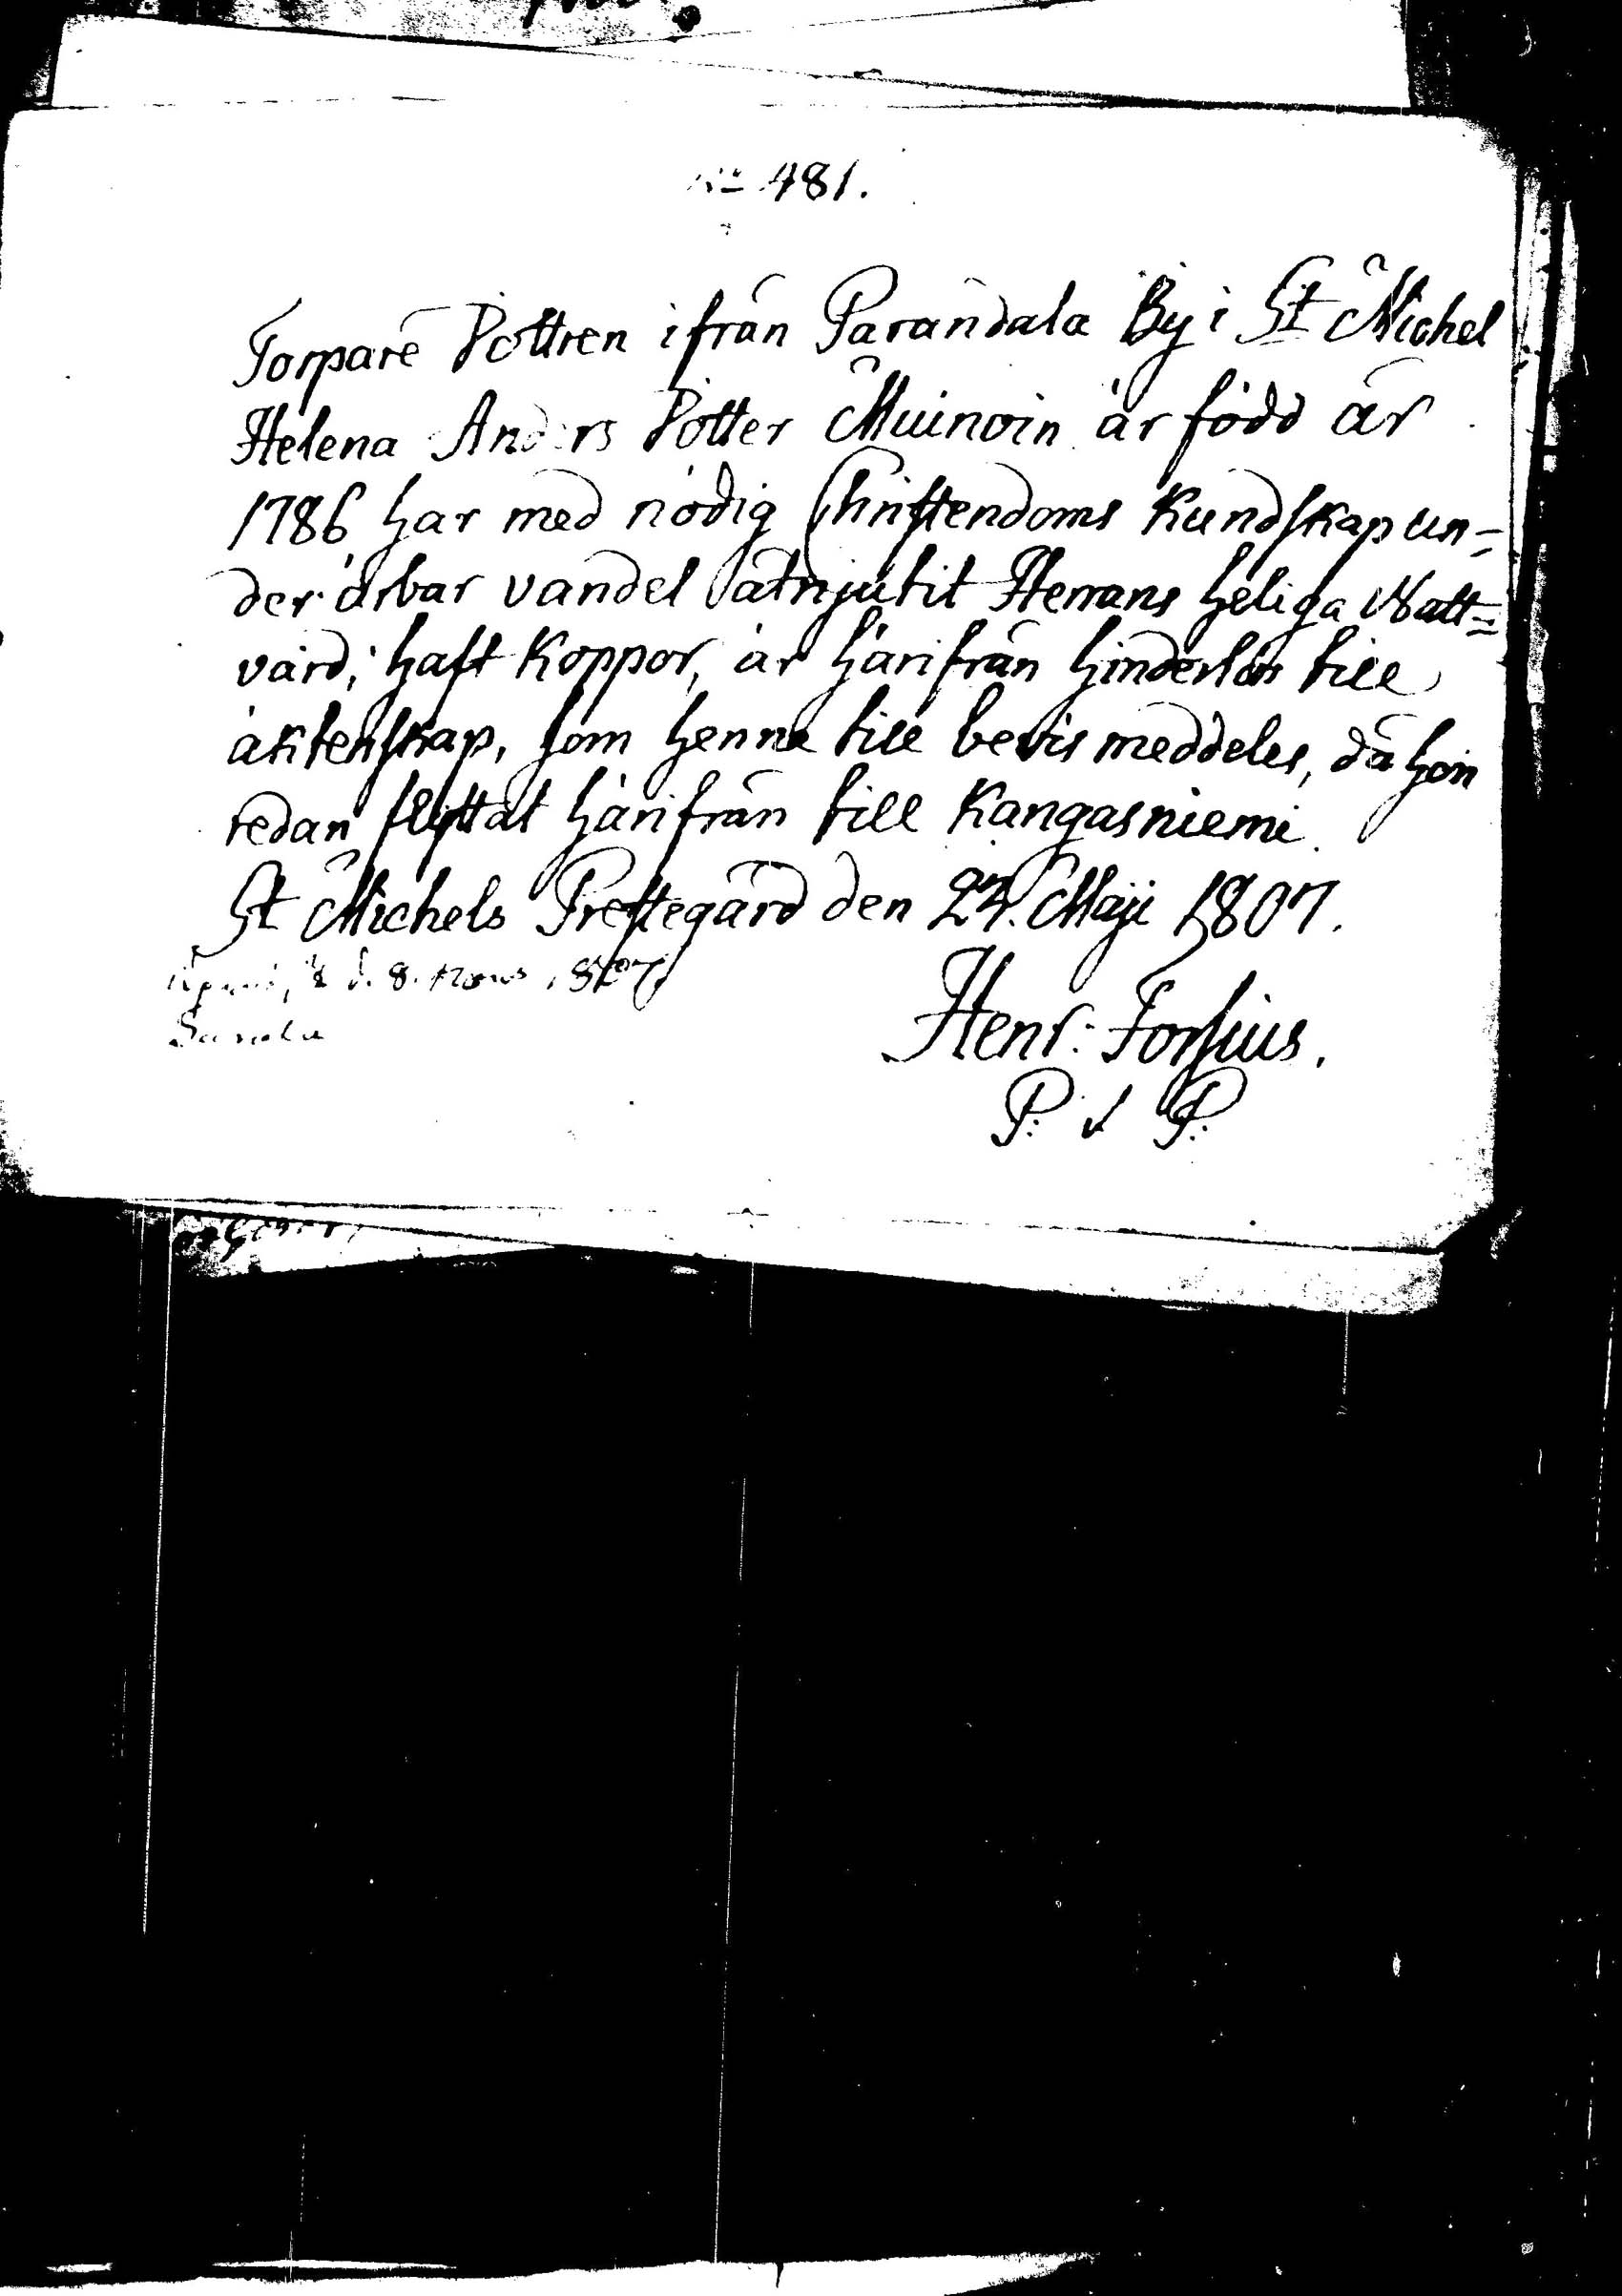 No 481.
Torpare Dottren ifrån Parandala By i St Michel
Helena Anders Dotter Muinoin är född år
1786 har med nödig Christendoms Kundskap un=
der ärbar vandel åtnjutit Herrans heliga Natt=
vard, haft Koppor, är härifrån hinderlös till
äktenskap, som henne till bevis meddeles, då hon
redan flyttat härifrån till Kangasniemi
St Michels Prestegård den 24. Maji 1807.
d. 8. 1807
Henr: Forsius.
P. P: